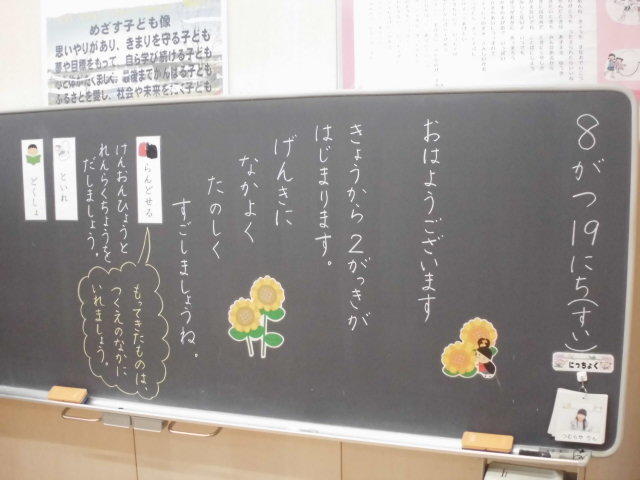 めざす子ども像
思いやりがあり、きまりを守る子ども
夢や目標をもって、自ら学び続ける子ども
心とからだをきたえ、最後までがんばる子ども
ふるさとを愛し、社会や未来をひらく子ども
8がつ19にち(すい)
にっちょく
おはようございます
きょうから2がっきが
はじまります。
げんきに
なかよく
たのしく
すごしましょうね。
らんどせる
けんおんひょうと
れんらくちょうを
だしましょう。
もってきたものは、
つくえのなかに
いれましょう。
といれ
どくしょ